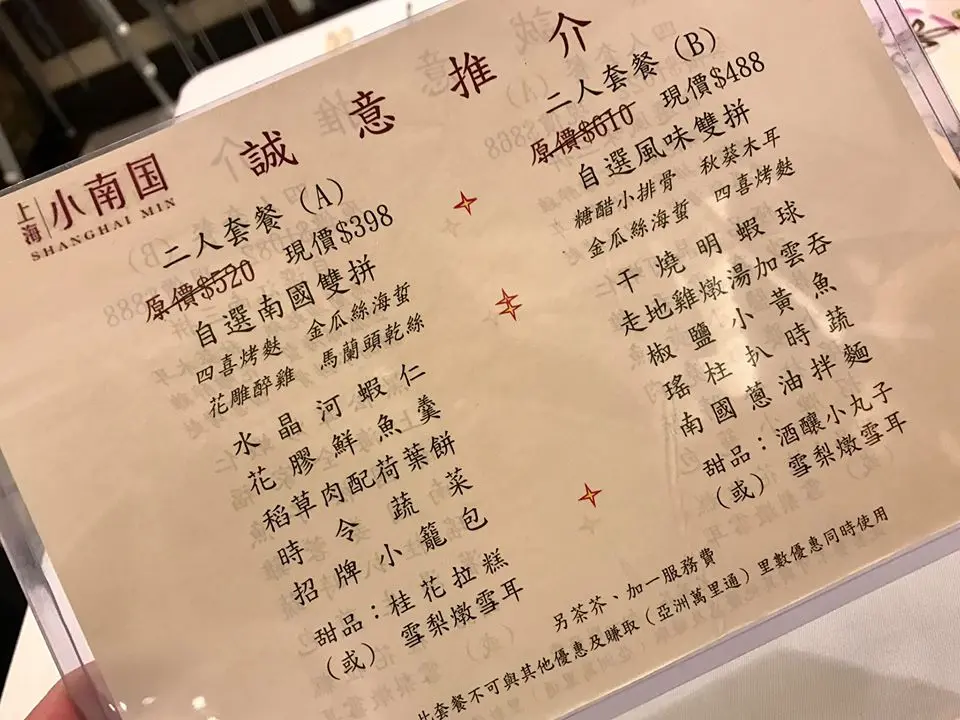 誠意推介
上海 小南国
SHANGHAI MIN
二人套餐（A）
原價$520 現價$398
自選南國雙拼
四喜烤麩 金瓜絲海蜇
花雕醉雞 馬蘭頭乾絲
水晶河蝦仁
花膠鮮魚羹
稻草肉配荷葉餅
時令蔬菜
招牌小籠包
甜品：桂花拉糕
（或） 雪梨燉雪耳
二人套餐（B）
原價$610 現價$488
自選風味雙拼
糖醋小排骨 秋葵木耳
金瓜絲海蜇 四喜烤麩
干燒明蝦球
走地雞燉湯加雲吞
椒鹽小黃魚
瑤柱扒時蔬
南國蔥油拌麵
甜品：酒釀小丸子
（或） 雪梨燉雪耳
另茶芥、加一服務費
此套餐不可與其他優惠及賺取（亞洲萬里通）里數優惠同時使用